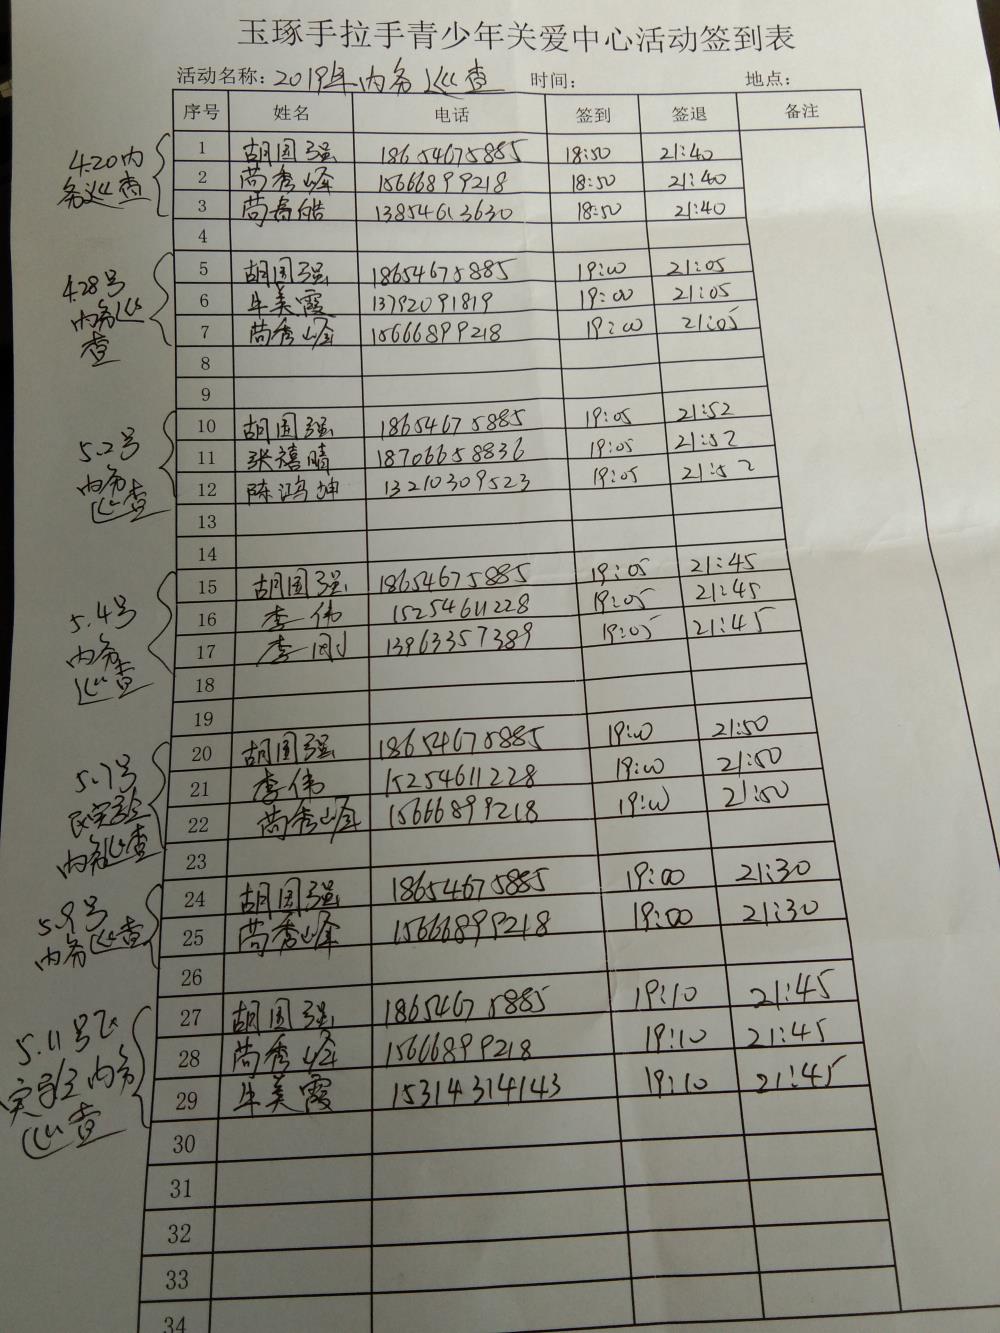 玉琢手拉手青少年关爱中心活动签到表
活动名称：2019年内务巡查 时间： 地点：
序号 姓名 电话 签到 签退 备注
4.20内
务巡查
1 胡国强 18654675885 18:50 21:40
2 尚秀峰 15666899218 18:50 21:40
3 尚 皓 13854613630 18:50 21:40
4
4.28号
内务巡
查
5 胡国强 18654675885 19:00 21:05
6 牛美霞 13792091819 19:00 21:05
7 尚秀峰 15666899218 19:00 21:05
8
9
5.2号
内务
巡查
10 胡国强 18654675885 19:05 21:52
11 张禧晴 18706658836 19:05 21:52
12 陈鸿坤 13210309523 19:05 21:52
13
14
5.4号
内务
巡查
15 胡国强 18654675885 19:05 21:45
16 李伟 15254611228 19:05 21:45
17 李刚 13963357389 19:05 21:45
18
19
5.7号
实验
内务巡查
20 胡国强 18654675885 19:00 21:50
21 李伟 15254611228 19:00 21:50
22 尚秀峰 15666899218 19:00 21:50
23
5.9号
内务巡查
24 胡国强 18654675885 19:00 21:30
25 尚秀峰 15666899218 19:00 21:30
26
5.11号
实验内务
巡查
27 胡国强 18654675885 19:10 21:45
28 尚秀峰 15666899218 19:10 21:45
29 牛美霞 15314314143 19:10 21:45
30
31
32
33
34